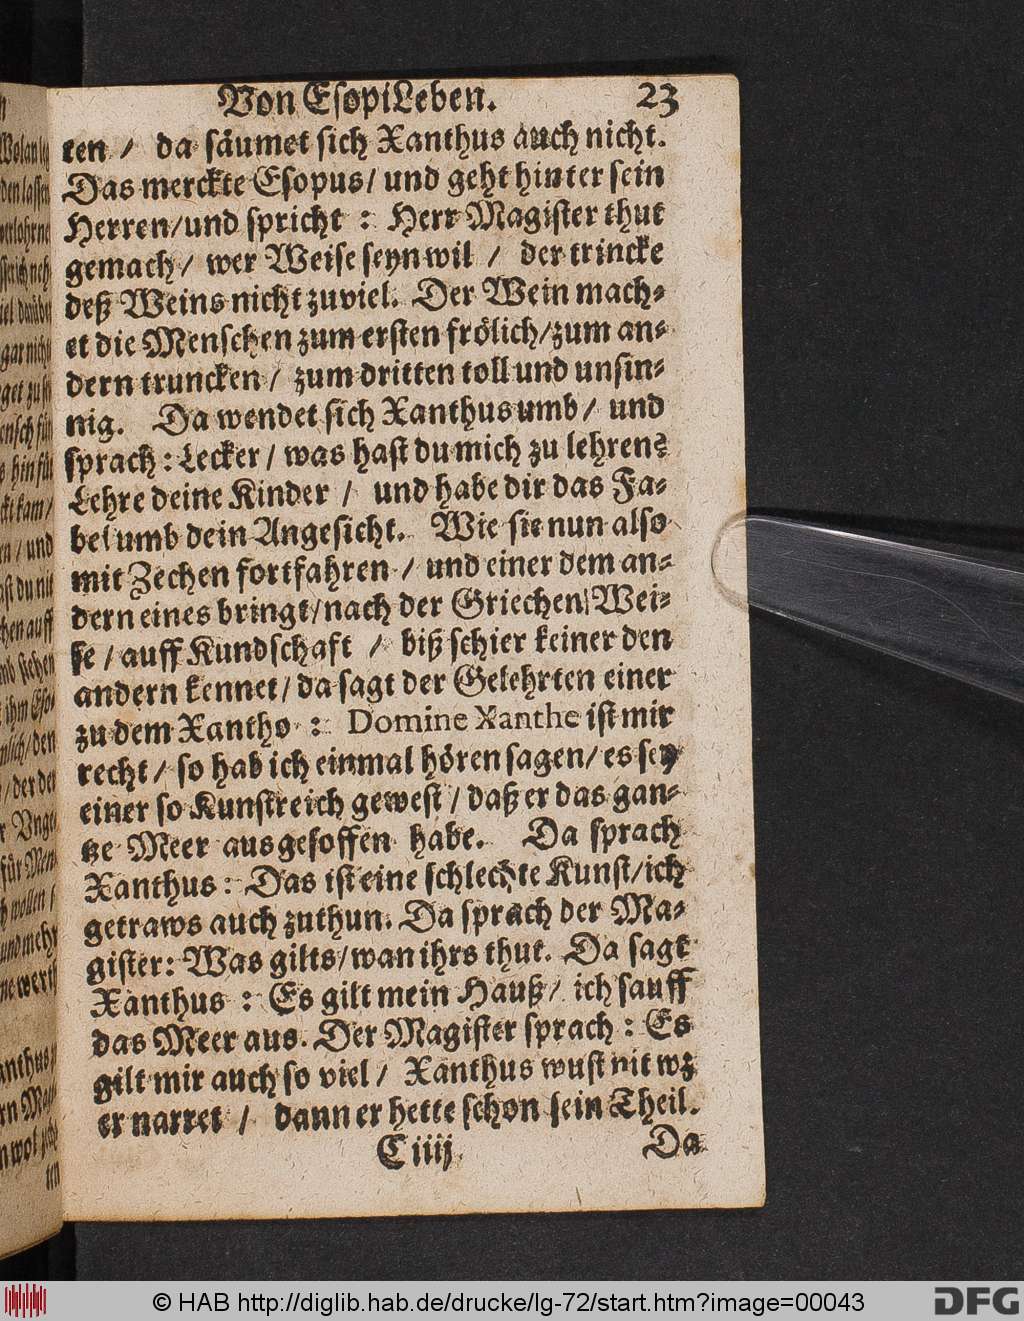 Von Esopi Leben. 23
ten / da säumet sich Xanthus auch nicht.
Das merckte Esopus / und geht hinter sein
Herren / und spricht : Herr Magister thut
gemach / wer Weise seyn wil / der trincke
deß Weins nicht zuviel. Der Wein mach-
et die Menschen zum ersten frölich / zum an-
dern truncken / zum dritten toll und unsin-
nig. Da wendet sich Xanthus umb / und
sprach : Lecker / was hast du mich zu lehren?
Lehre deine Kinder / und habe dir das Fa-
bel umb dein Angesicht. Wie sie nun also
mit Zechen fortfahren / und einer dem an-
dern eines bringt / nach der Griechen Wei-
se / auff Kundschaft / biß schier keiner den
andern kennet / da sagt der Gelehrten einer
zu dem Xantho : Domine Xanthe ist mir
recht / so hab ich einmal hören sagen / es sey
einer so Kunstreich gewest / daß er das gan-
tze Meer ausgesoffen habe. Da sprach
Xanthus : Das ist eine schlechte Kunst / ich
getraws auch zuthun. Da sprach der Ma-
gister : Was gilts / wan ihrs thut. Da sagt
Xanthus : Es gilt mein Hauß / ich sauff
das Meer aus. Der Magister sprach : Es
gilt mir auch so viel / Xanthus wust nit wz
er narret / dann er hette schon sein Theil.
C iiij. Da
© HAB http://diglib.hab.de/drucke/lg-72/start.htm?image=00043
DFG